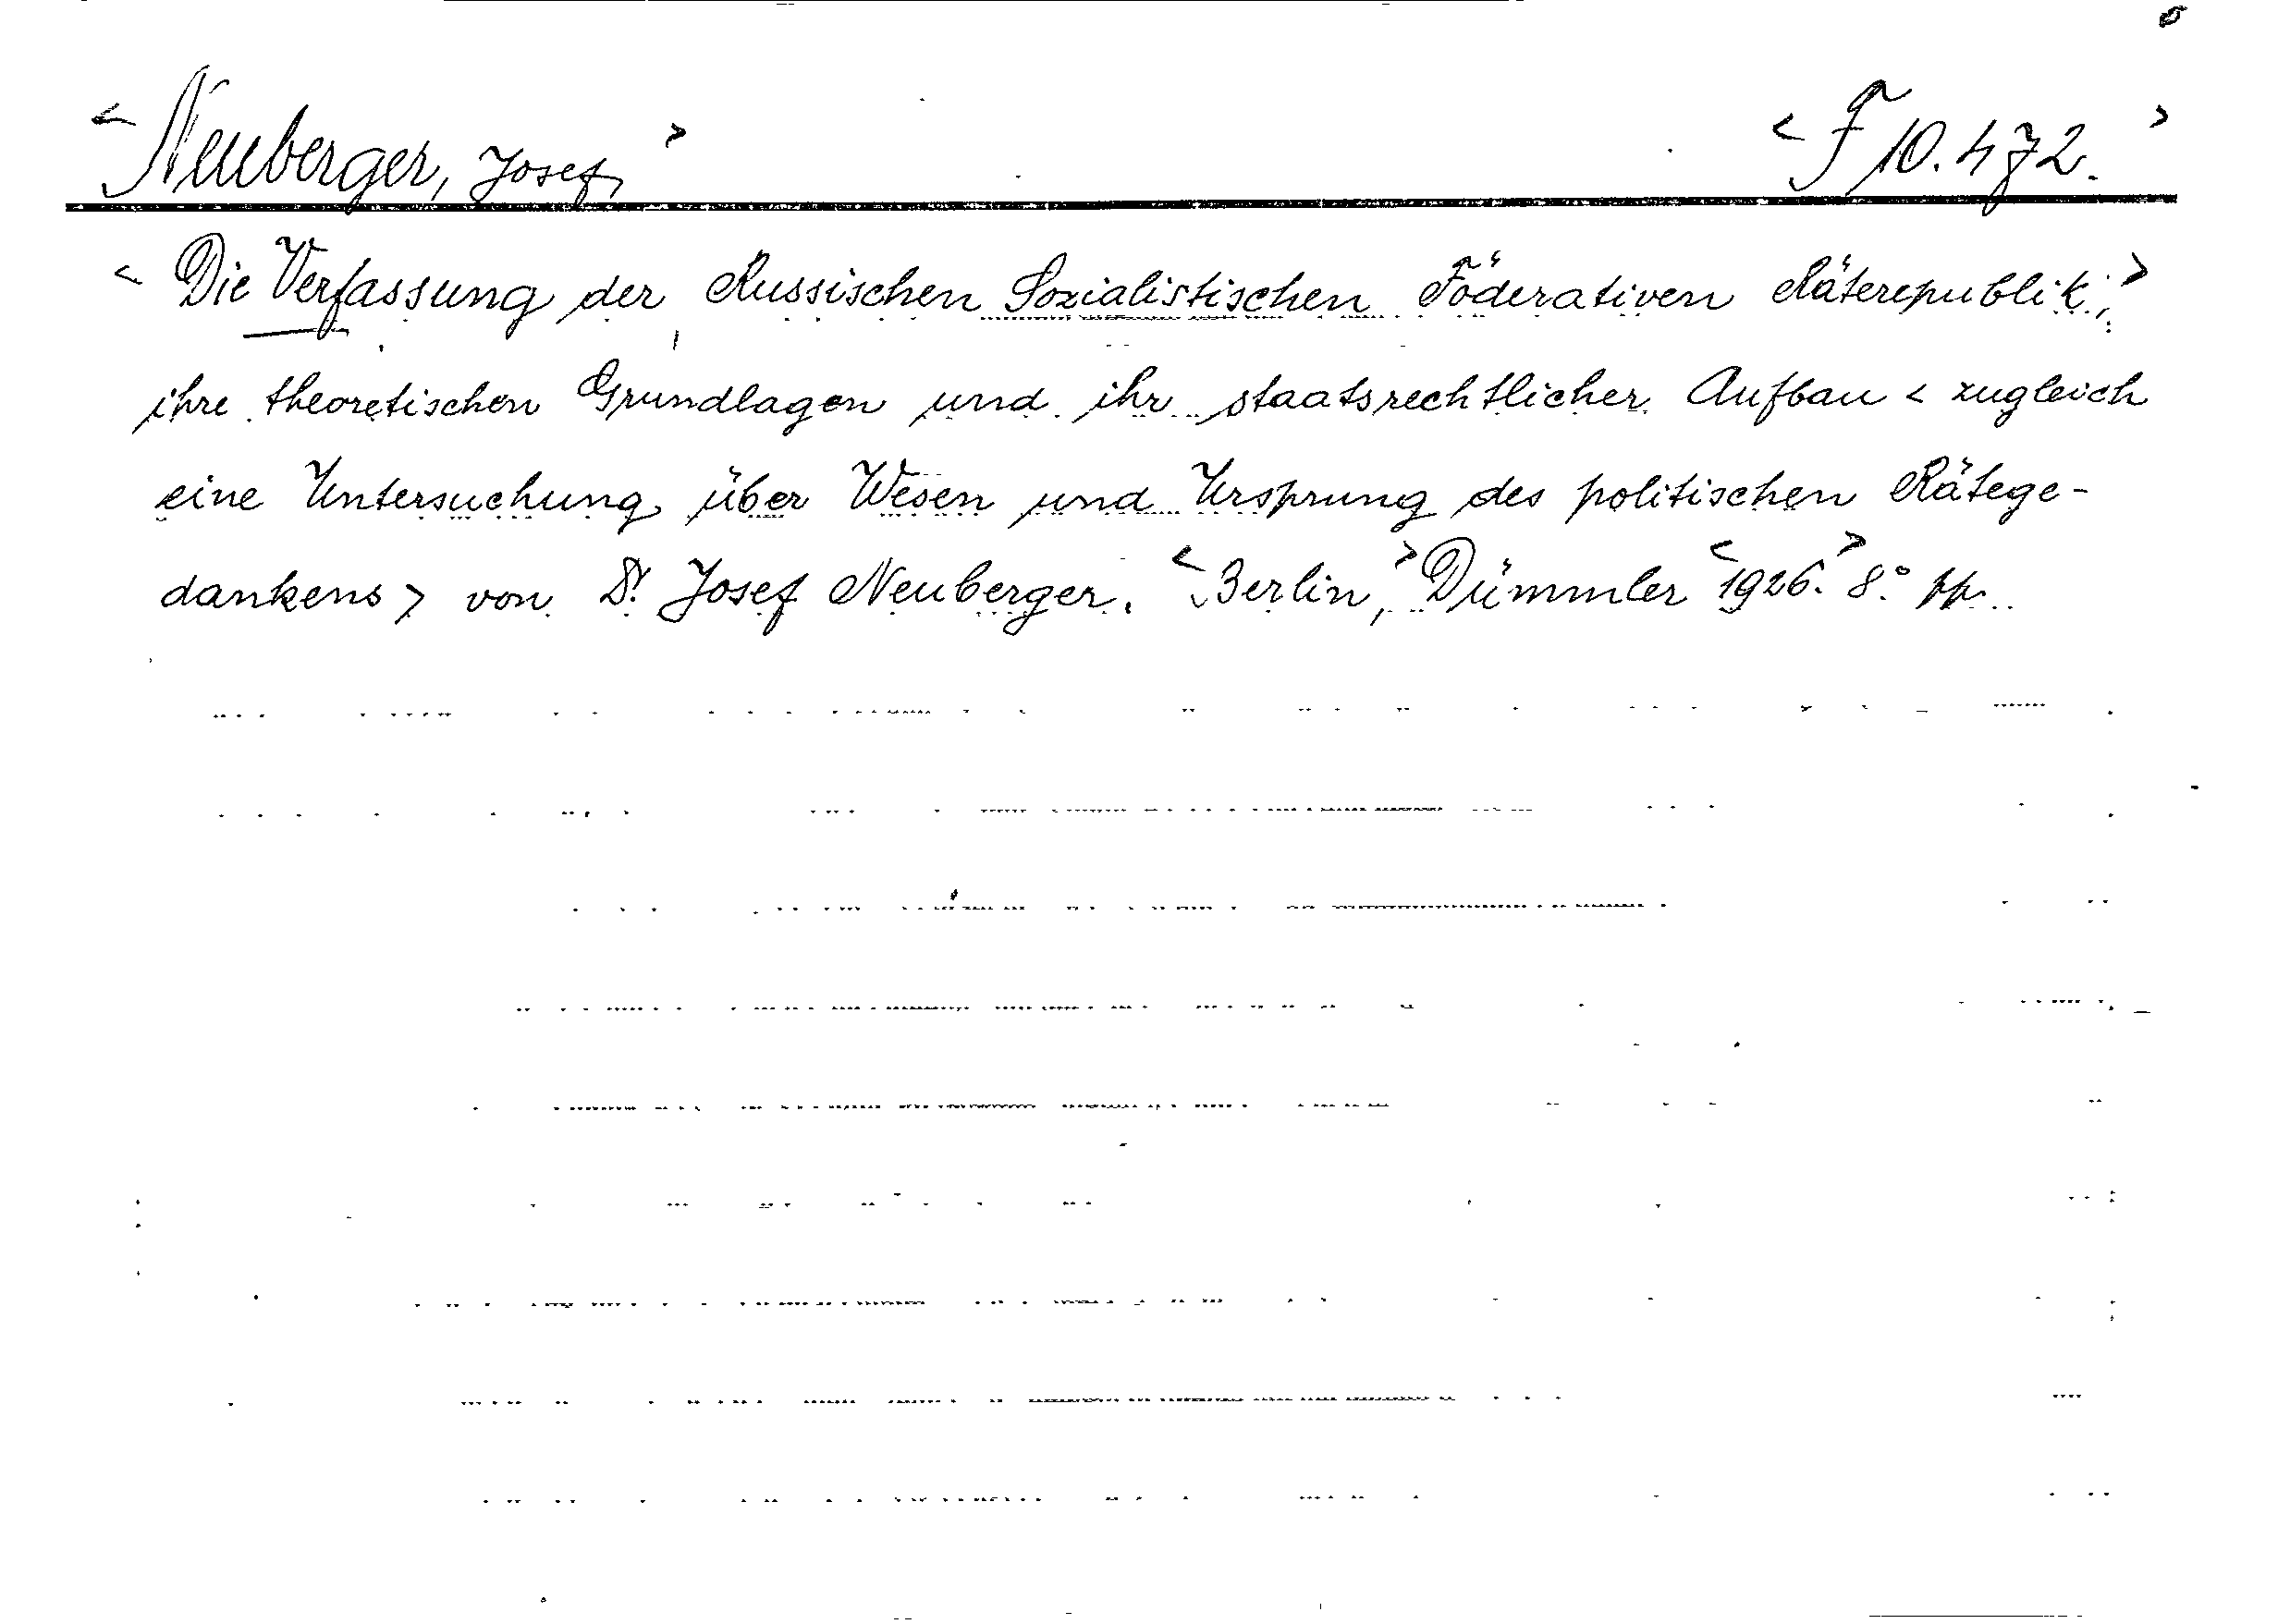 < Neuberger, Josef, > < F 10.472. >
< Die Verfassung der Russischen Sozialistischen Föderativen Räterepublik, >
ihre theoretischen Grundlagen und ihr staatsrechtlicher Aufbau < zugleich
eine Untersuchung über Wesen und Ursprung des politischen Rätege-
dankens > von Dr. Josef Neuberger. < Berlin, > Dümmler < 1926. > 8.° pp.